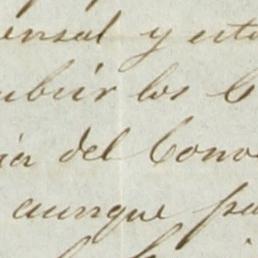 ensal y esta
ubir los C
ia del Conv
aunque pa